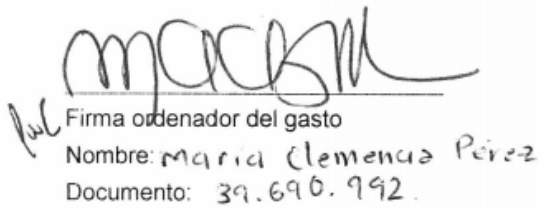 Firma ordenador del gasto
Nombre: Maria Clemencia Pérez
Documento: 39.690.992.